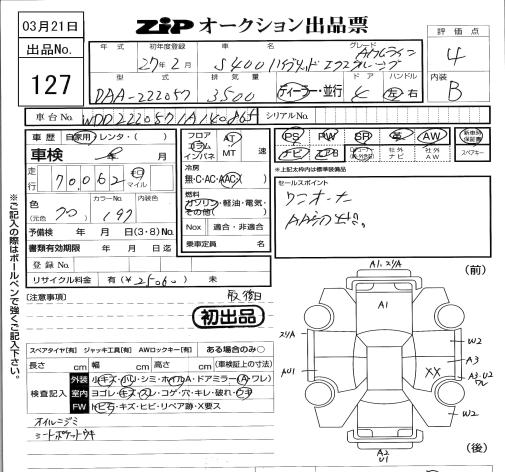 03月21日
ZIP オークション出品票
出品No.
127
年式 初年度登録 車名 グレード 評価点
27年2月 S400 ハイブリッド エクスクルーシブ AMGライン 4
型式 排気量 ドア ハンドル 内装
DAA-222057 3500 ディーラー・並行 4 左 右 B
車台No. WDD222057 シリアルNo.
車歴 自家用・レンタ・( )
車検 年 月
走行 70,062 キロ マイル
色 (元色 クロ ) カラーNo. 197 内装色
予備検 年 月 日 (3・8) No.
書類有効期限 年 月 日迄
登録No.
リサイクル料金 有 (¥ ) 未
フロア コラム インパネ AT MT 速
冷房 無・C・AC・AAC
燃料 ガソリン・軽油・電気・その他( )
Nox 適合・非適合
乗車定員 名
PS PW SR 革 AW 新車時保証書
ナビ エアB 社外ナビ 社外AW スペアキー
※上記太枠内は標準装備品
セールスポイント
ワンオーナー
※ご記入の際はボールペンで強くご記入下さい。
[注意事項] 取・後日
初出品
スペアタイヤ[有] ジャッキ工具[有] AWロックキー[有] ある場合のみ○
長さ cm 幅 cm 高さ cm (車検証上の寸法)
検査記入
外装 小キズ・小ハリ・シミ・ホイルA・ドアミラー(A・ワレ)
室内 ヨゴレ・キズ・スレ・コゲ・穴・キレ・破れ・ウキ
FW トビ石・キズ・ヒビ・リペア跡・X要ス
オイルニジミ
シートポケットウキ
(前)
A1
W2
A3
XX
A3・U2
ワレ
W2
A2
U1
(後)